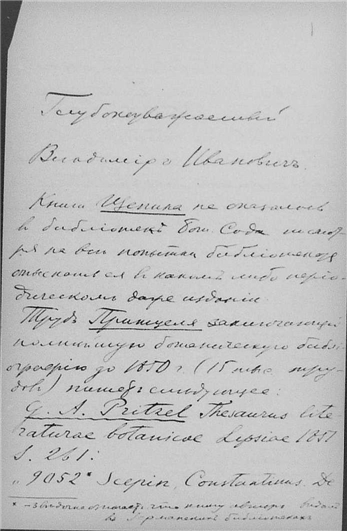 Глубокоуважаемый
Владиміръ Ивановичъ.
Книги Щепина не оказалось
въ библіотекѣ Бот. Сада несмот
ря на всѣ попытки библіотекаря
отыскать ея въ какомъ либо періо
дическомъ даже изданіи
Трудъ Притцеля заключающій
полнѣйшую ботаническую библі
ографію до 1850 г. (15 тыс. тру
довъ) пишетъ слѣдующее:
G. A. Pritzel Thesaurus lite
raturae botanicae Lipsiae 1851
S. 261:
„ 9052* Scepin, Constantinus. De
* – звѣздочка означаетъ, что книгу авторъ видѣлъ
въ Германскихъ библіотекахъ